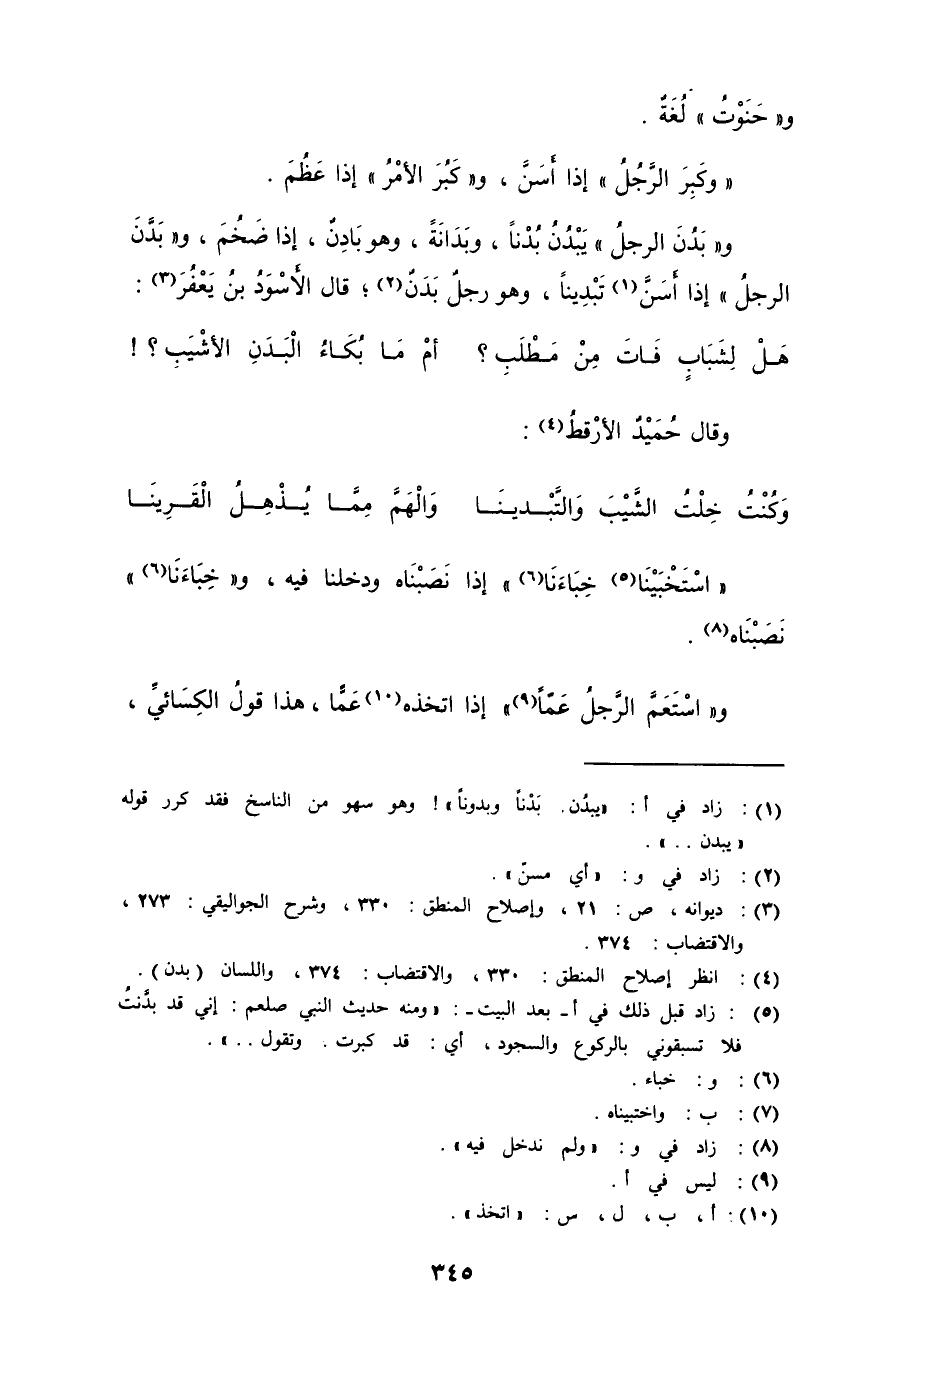 و« حَنَوْتُ » لُغَةٌ .
« وكَبِرَ الرَّجُلُ » إذا أَسَنَّ ، و« كَبُرَ الأمْرُ » إذا عَظُمَ .
و« بَدُنَ الرجلُ » يَبْدُنُ بُدْناً ، وبَدَانَةً ، وهو بَادِنٌ ، إذا ضَخُمَ ، و« بَدَّنَ
الرجلُ » إذا أَسَنَّ(١) تَبْدِيناً ، وهو رجلٌ بَدَنٌ(٢) ؛ قال الأَسْوَدُ بنُ يَعْفُرَ(٣) :
هَلْ لِشَبَابٍ فَاتَ مِنْ مَطْلَبِ ؟ أمْ مَا بُكَاءُ الْبَدَنِ الأشْيَبِ ؟ !
وقال حُمَيْدٌ الأرْقطُ(٤) :
وَكُنْتُ خِلْتُ الشَّيْبَ وَالتَّبْدينَا وَالْهَمَّ مِمَّا يُذْهِلُ الْقَرِينَا
« اسْتَخْبَيْنَا(٥) خِبَاءَنَا(٦) » إذا نَصَبْنَاه ودخلنا فيه ، و« خِبَاءَنَا(٦) »
نَصَبْنَاه(٨) .
و« اسْتَعَمَّ الرَّجلُ عَمّاً(٩)» إذا اتخذه(١٠)عَمًّا ، هذا قولُ الكِسَائيِّ ،
(١) : زاد في أ : «يبدُن. بَدْناً وبدوناً» ! وهو سهو من الناسخ فقد كرر قوله
« يبدن . . » .
(٢) : زاد في و : « أي مسنّ» .
(٣) : ديوانه ، ص : ٢١ ، وإصلاح المنطق : ٣٣٠ ، وشرح الجواليقي : ٢٧٣ ،
والاقتضاب : ٣٧٤ .
(٤) : انظر إصلاح المنطق : ٣٣٠ ، والاقتضاب : ٣٧٤ ، واللسان ( بدن ) .
(٥) : زاد قبل ذلك في أ ـ بعد البيت ـ : « ومنه حديث النبي صلعم : إني قد بدَّنتُ
فلا تسبقوني بالركوع والسجود ، أي : قد كبرت . وتقول . . » .
(٦) : و : خباء .
(٧) : ب : واختبيناه .
(٨) : زاد في و : « ولم ندخل فيه » .
(٩) : ليس في أ .
(١٠) : أ ، ب ، ل ، س : « اتخذ » .
٣٤٥